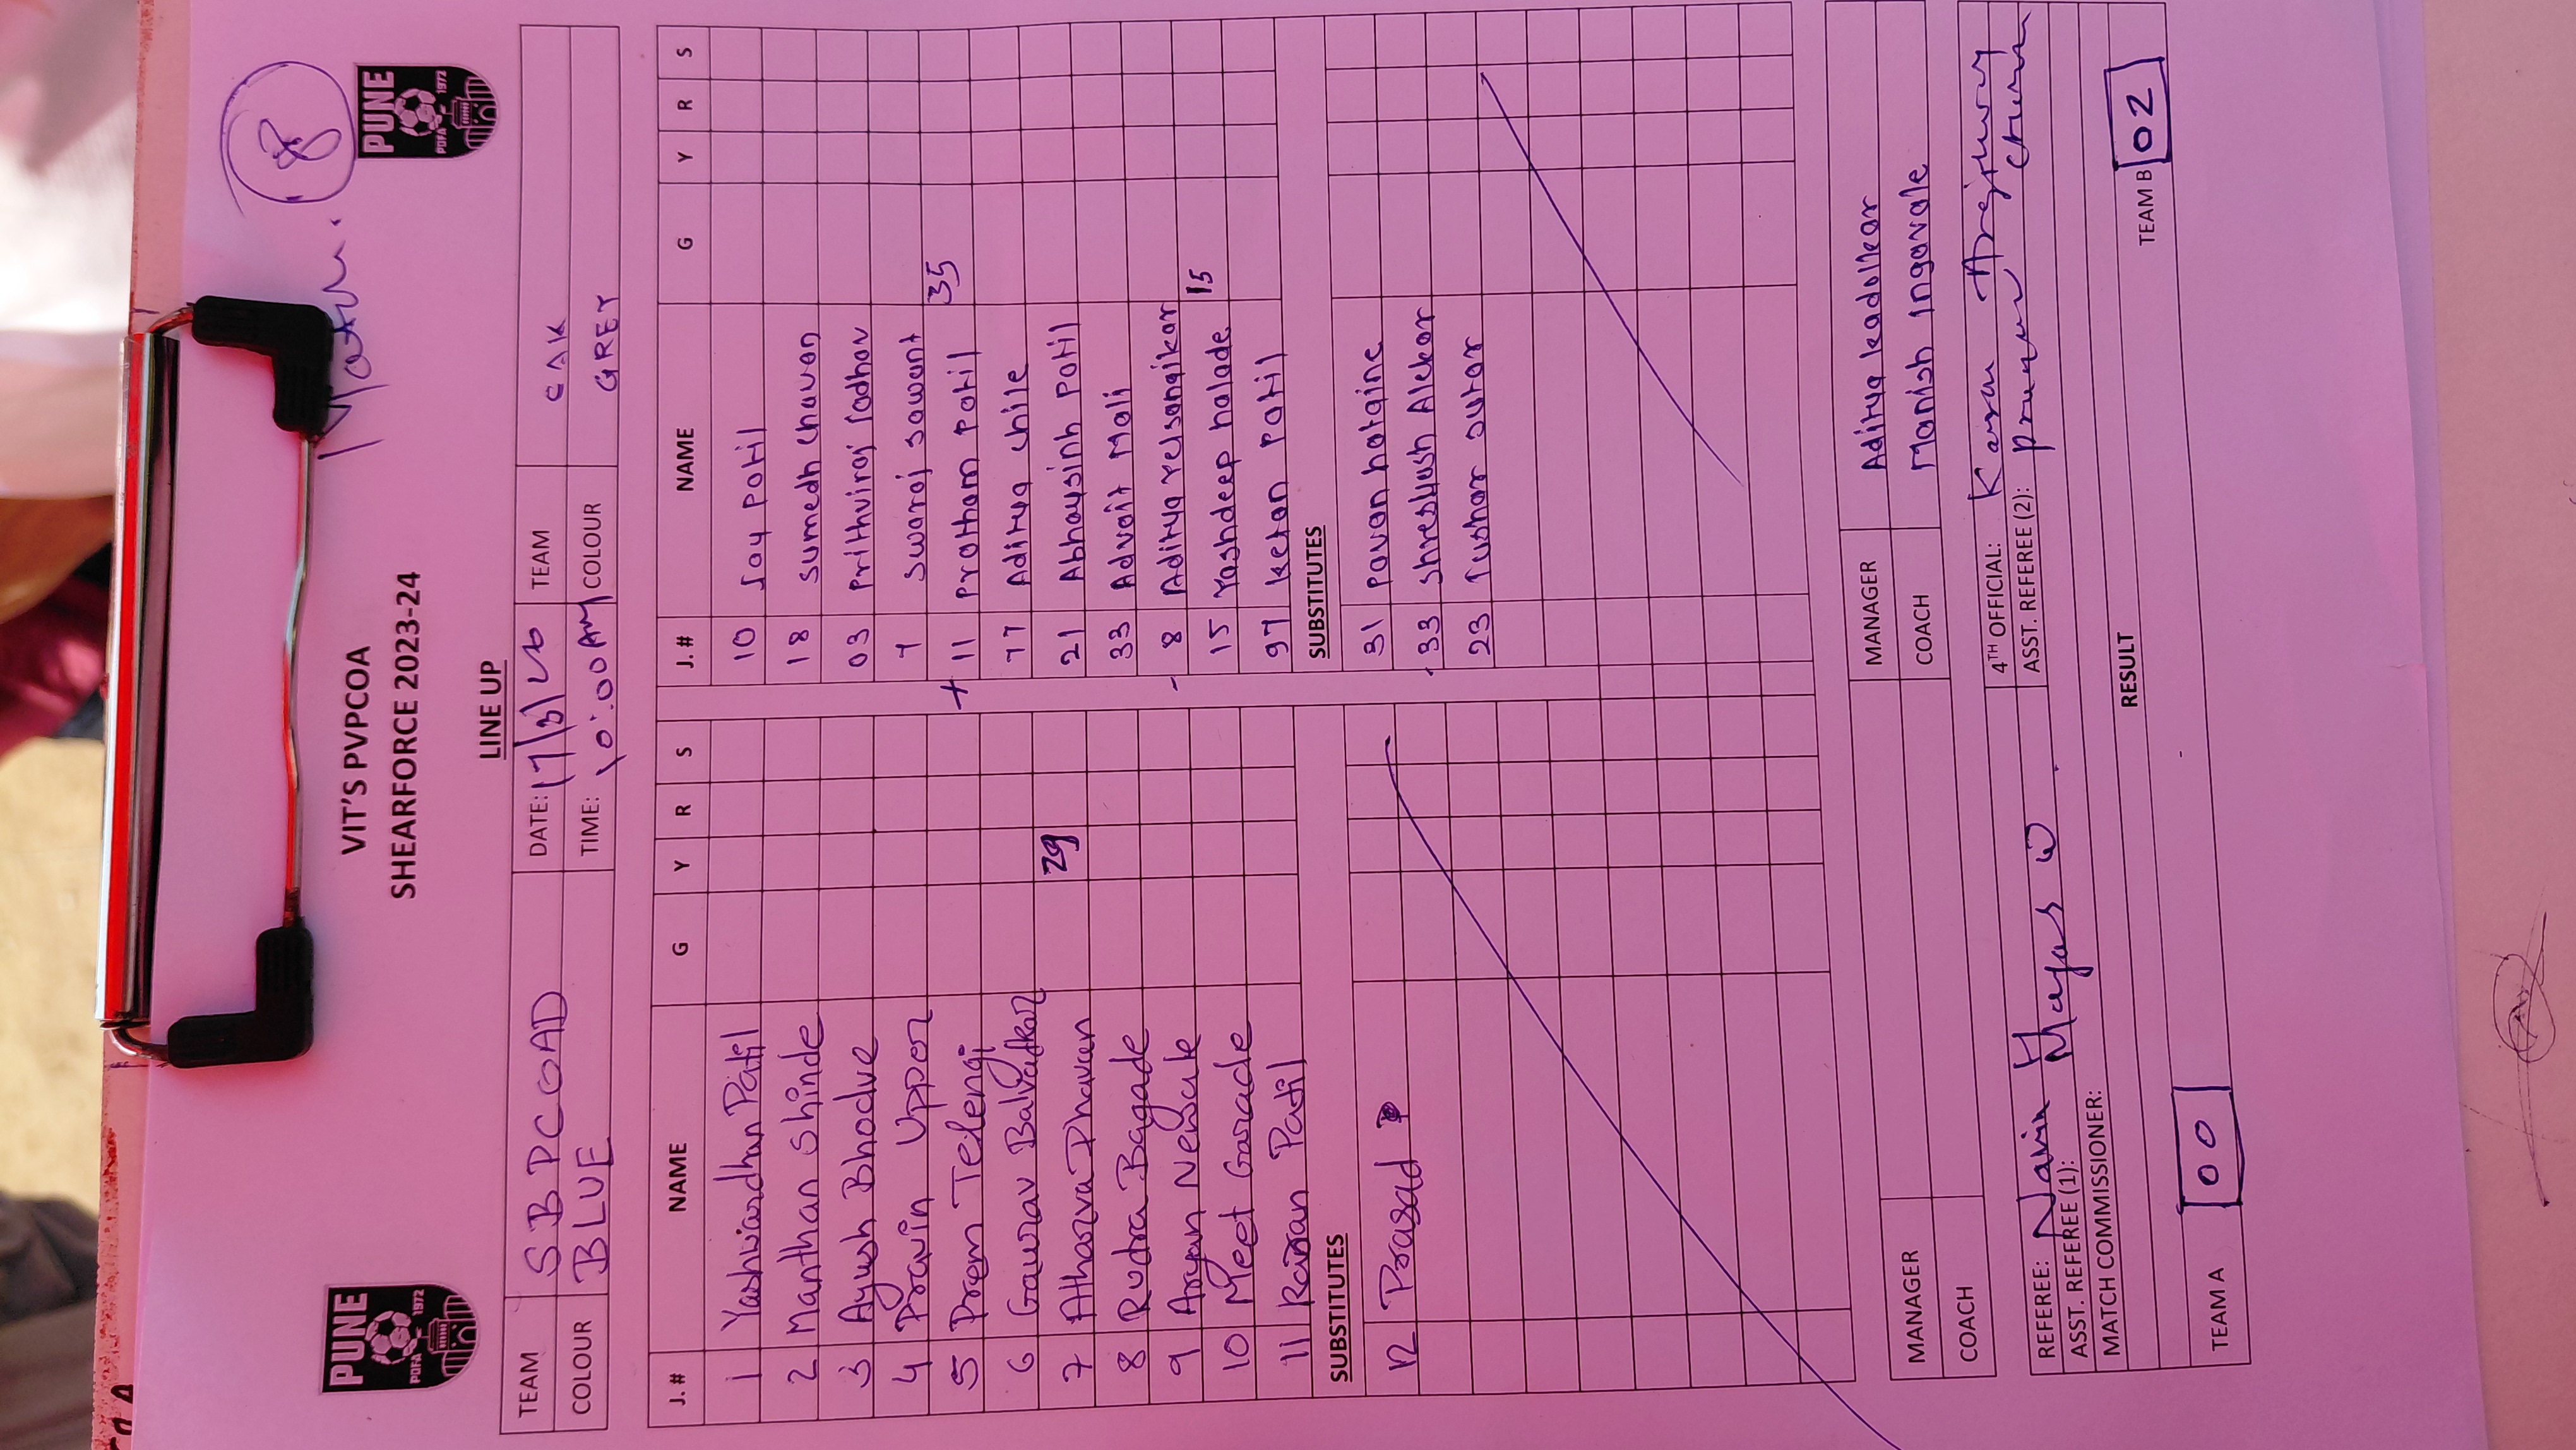 8
PUNE
PDFA 1972
PUNE
PDFA 1972
VIT'S PVPCOA
SHEARFORCE 2023-24
LINE UP
TEAM SBPCOAD DATE: 17/3/24 TEAM CAK
COLOUR BLUE TIME: 10:00AM COLOUR GREY
J. # NAME G Y R S J. # NAME G Y R S
1 Yashvardhan Patil 10 Jay Patil
2 Manthan Shinde 18 Sumedh Chavan
3 Ayush Bhodve 03 Prithviraj Jadhav
4 Pravin Upper 7 Swaraj Sawant
5 Prem Telengi + 11 Pratham Patil 35
6 Gaurav Balvadkar 77 Aditya Chile
7 Atharva Dhavan 29 21 Abhaysinh Patil
8 Rudra Bagade 33 Advait Mali
9 Aryan Nevale - 8 Aditya Yelsangikar
10 Meet Garade 15 Yashdeep halade 15
11 Rajan Patil 97 Ketan Patil
SUBSTITUTES SUBSTITUTES
12 Prasad P 31 Pavan hatgine
33 Shreyash Alekar
23 Tushar Sutar
MANAGER MANAGER Aditya kadolkar
COACH COACH Manish Ingavale
REFEREE: Navin H 4TH OFFICIAL: Karan
ASST. REFEREE (1): Mayas W ASST. REFEREE (2):
MATCH COMMISSIONER:
RESULT
TEAM A 00 TEAM B 02